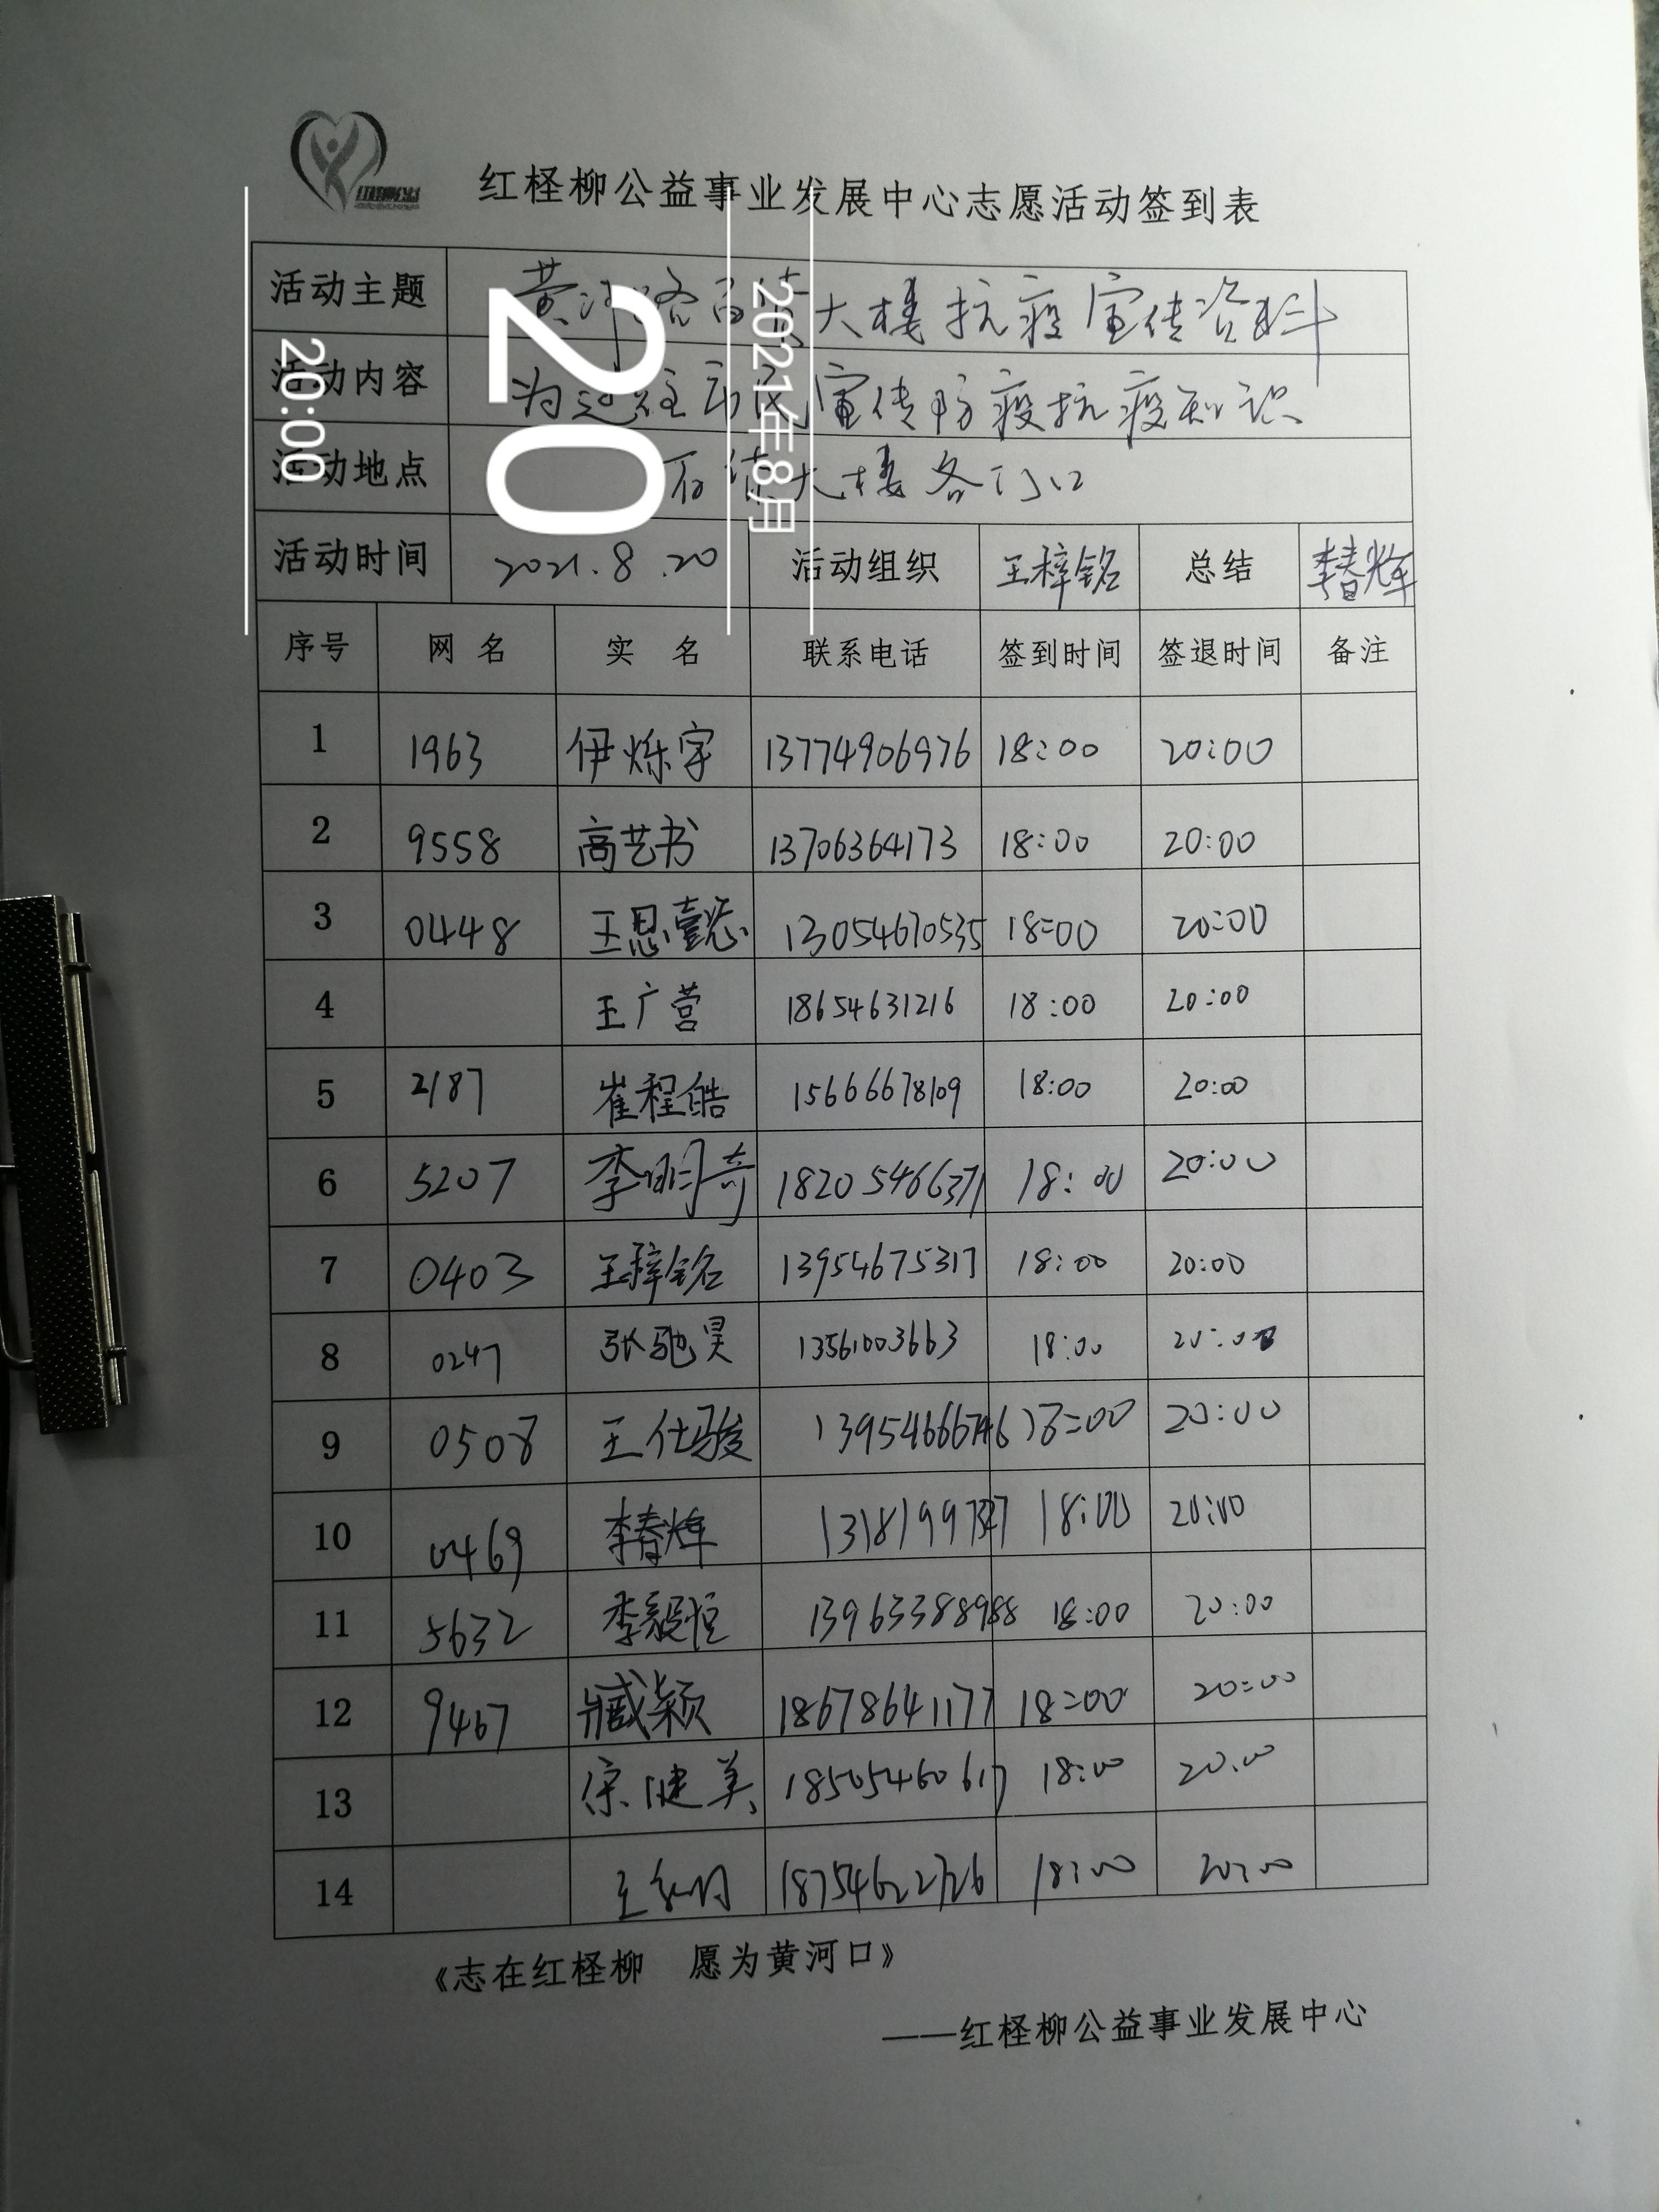 红柽柳公益事业发展中心志愿活动签到表
活动主题 黄河路百货大楼抗疫宣传资料
活动内容 为过往市民宣传防疫抗疫知识
活动地点 百货大楼各门口
活动时间 2021.8.20 活动组织 王梓铭 总结 李春辉
20:00
20
2021年8月
序号 网名 实名 联系电话 签到时间 签退时间 备注
1 1963 伊烁宇 13774906976 18:00 20:00
2 9558 高艺书 13706364173 18:00 20:00
3 0448 王思懿 13054670535 18:00 20:00
4 王广营 18654631216 18:00 20:00
5 2187 崔程皓 15666678109 18:00 20:00
6 5207 李明奇 18205466371 18:00 20:00
7 0403 王梓铭 13954675317 18:00 20:00
8 0247 张驰昊 13561003663 18:00 20:00
9 0508 王仕骏 18:00 20:00
10 0469 李春辉 18:00 20:00
11 5632 李毅恒 13963388988 18:00 20:00
12 9467 臧颖 18678641177 18:00 20:00
13 宋健美 18505460617 18:00 20:00
14 18:00 20:00
《志在红柽柳 愿为黄河口》
——红柽柳公益事业发展中心